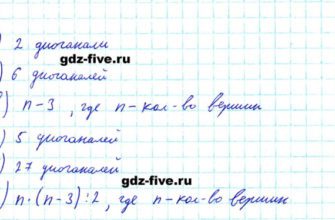 ) 2 диоганали
gdz-five.ru
) 6 диоганалей
) n - 3 , где n - кол-во вершин
) 5 диоганалей
) 27 диоганалей
gdz-five.ru
) n · (n - 3) : 2, где n - кол-во вершин